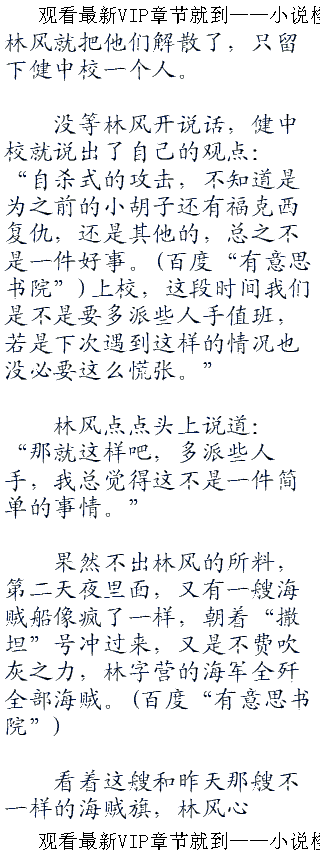 观看最新VIP章节就到——小说检
林风就把他们解散了，只留
下健中校一个人。
没等林风开说话，健中
校就说出了自己的观点：
“自杀式的攻击，不知道是
为之前的小胡子还有福克西
复仇，还是其他的，总之不
是一件好事。(百度“有意思
书院”)上校，这段时间我们
是不是要多派些人手值班，
若是下次遇到这样的情况也
没必要这么慌张。”
林风点点头上说道：
“那就这样吧，多派些人
手，我总觉得这不是一件简
单的事情。”
果然不出林风的所料，
第二天夜里面，又有一艘海
贼船像疯了一样，朝着“撒
坦”号冲过来，又是不费吹
灰之力，林字营的海军全歼
全部海贼。(百度“有意思书
院”)
看着这艘和昨天那艘不
一样的海贼旗，林风心
观看最新VIP章节就到——小说检